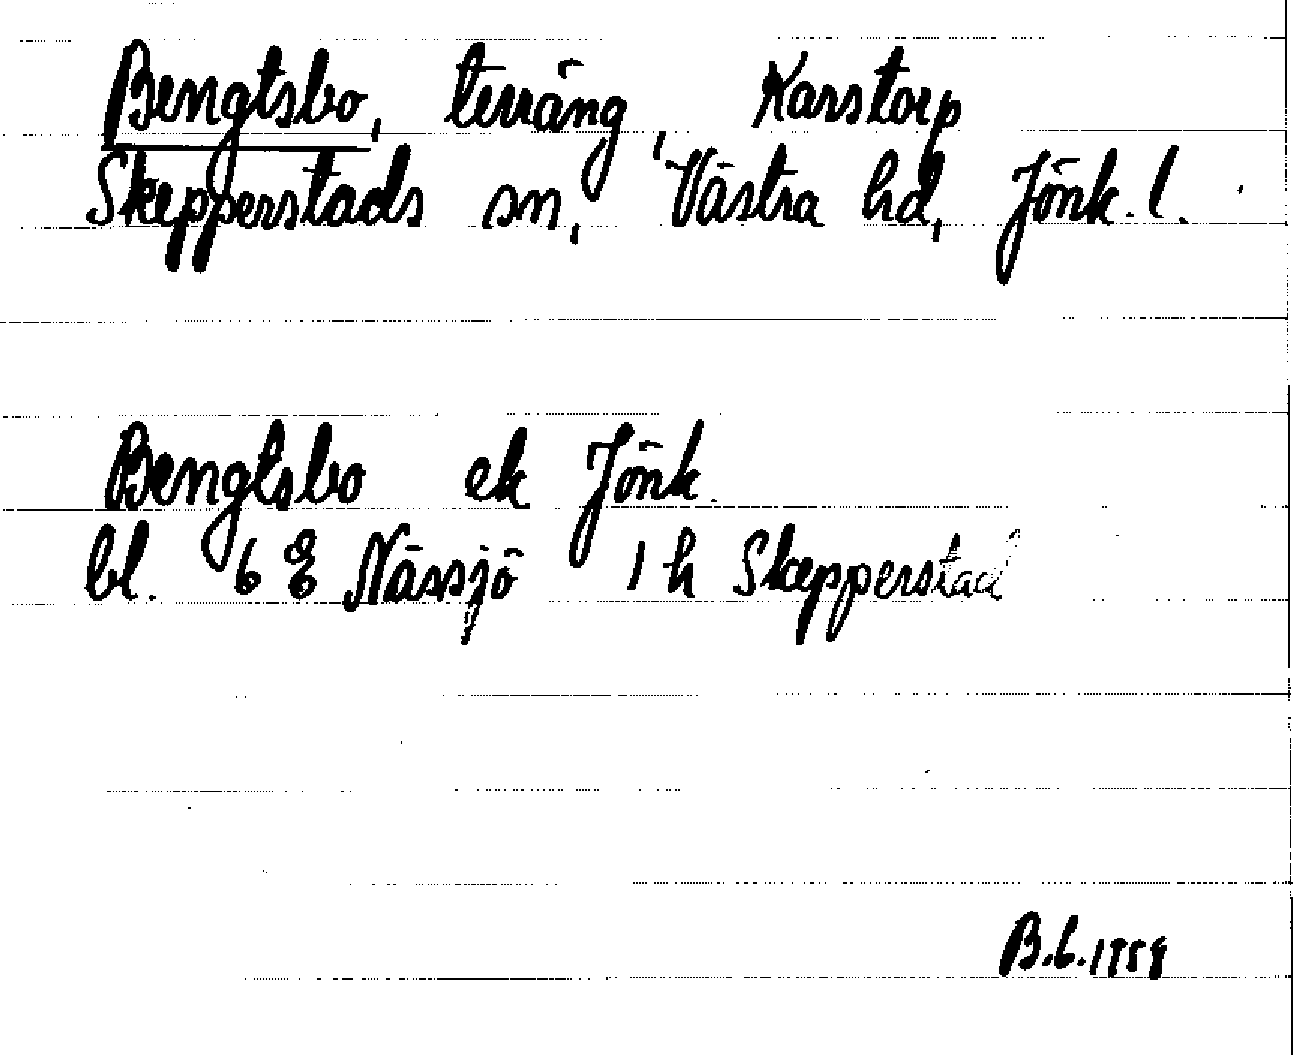 Bengtsbo, terräng, Karstorp
Skepperstads sn, Västra hd, Jönk. l.
Bengtsbo ek Jönk.
bl. 6 E Nässjö 1 h Skepperstad